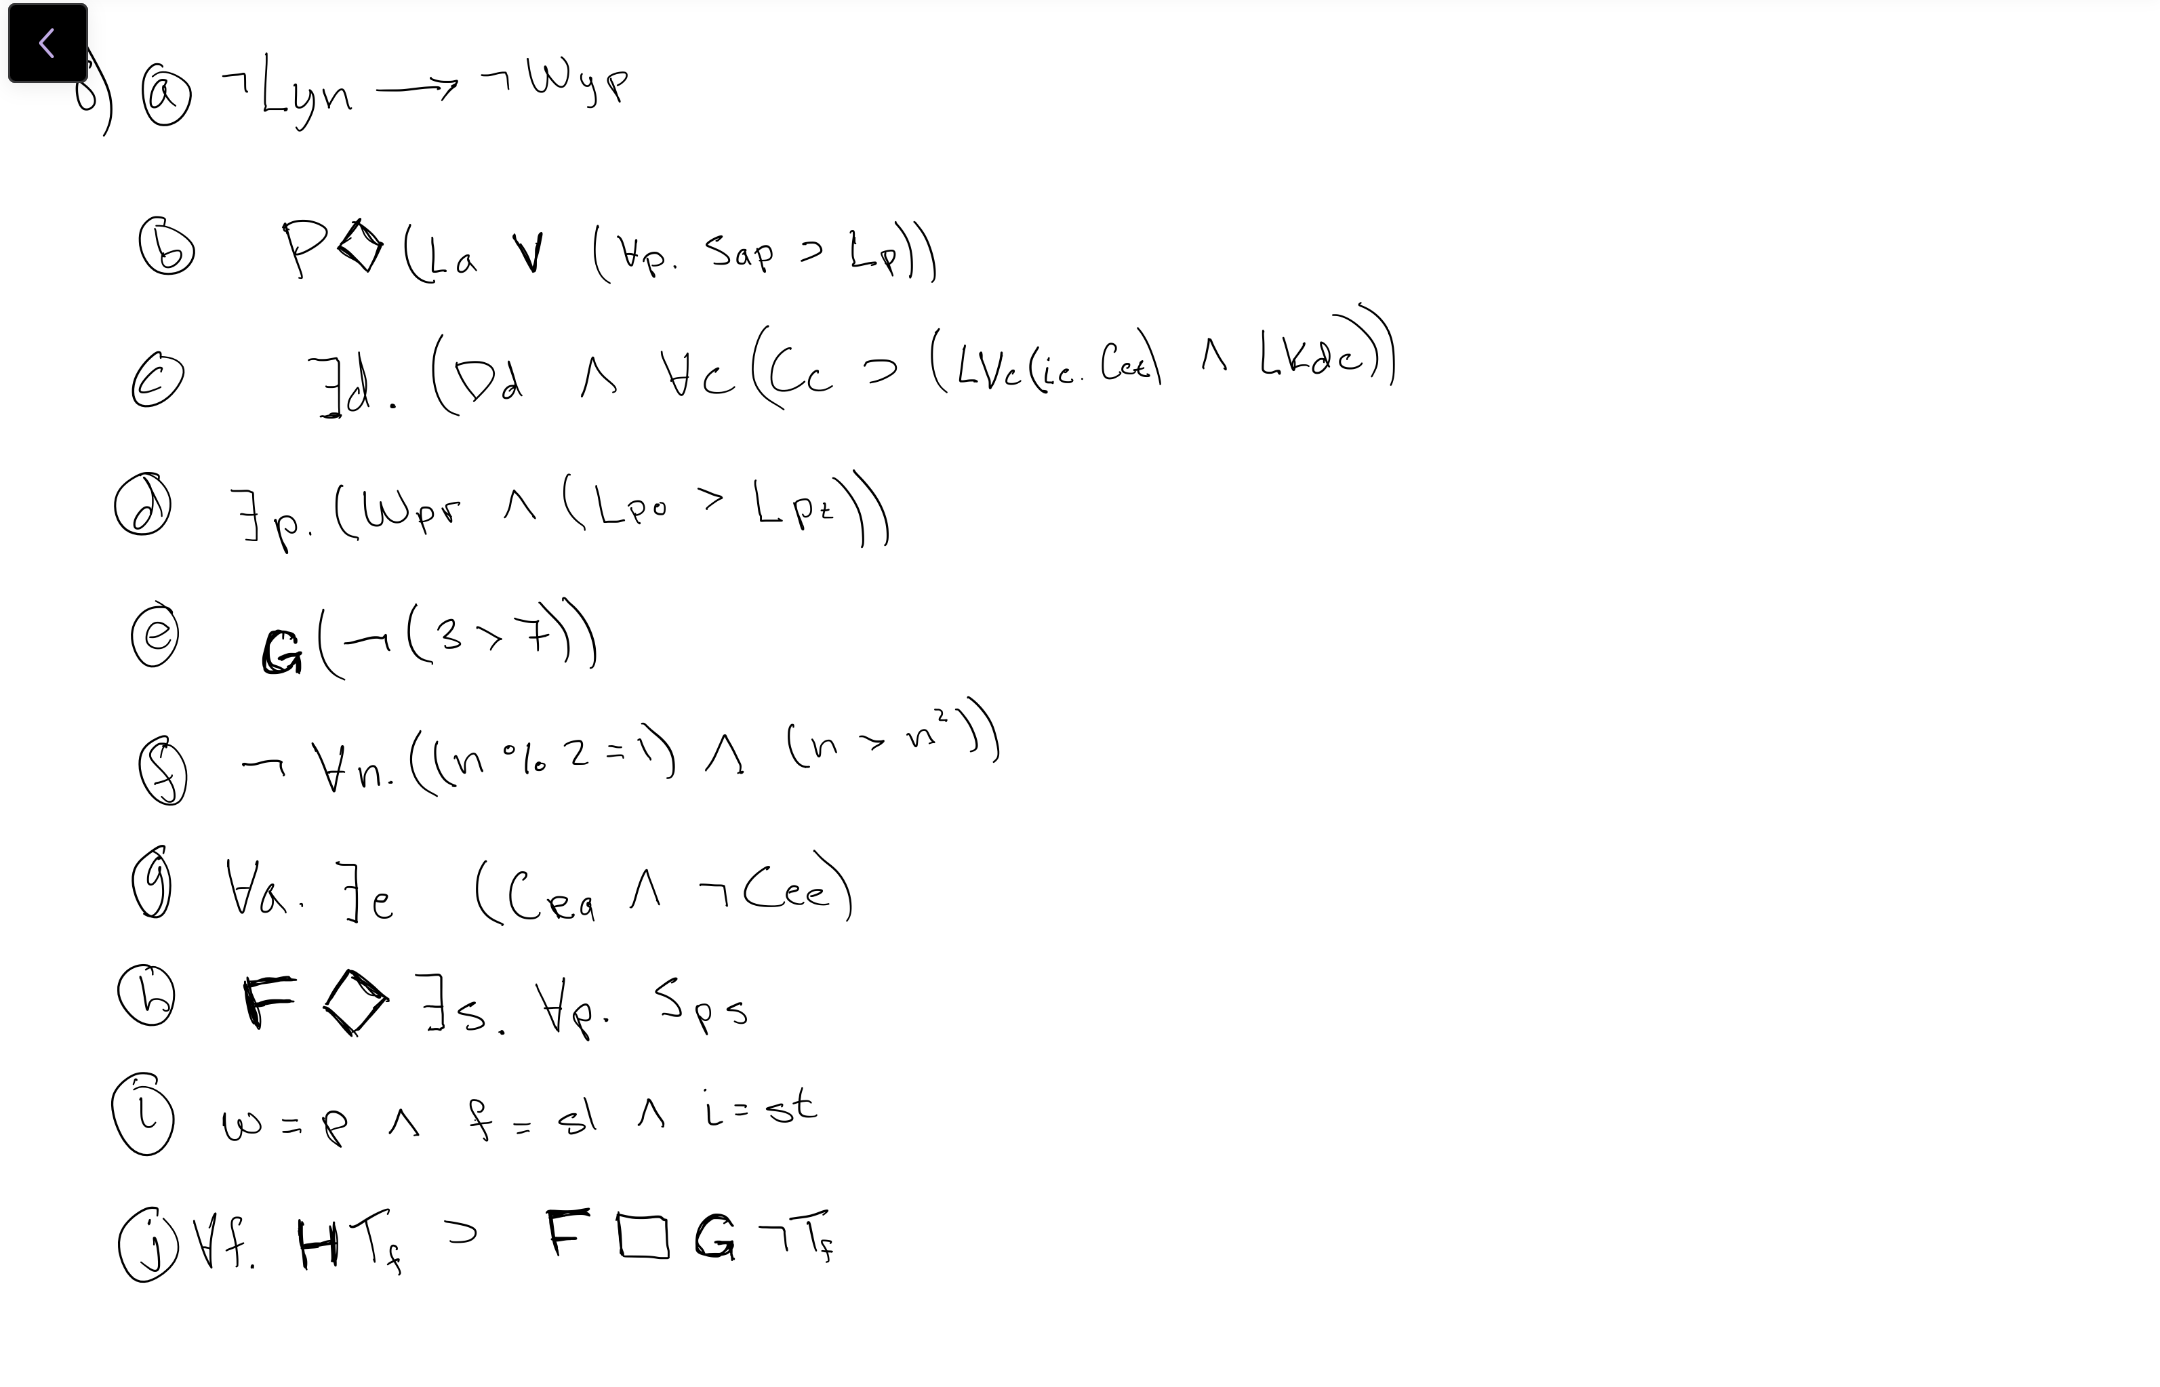 ⓐ ¬Lyn ⟶ ¬Wyp
ⓑ P◇(La ∨ (∀p. Sap ⊃ Lp))
ⓒ ∃d. (Dd ∧ ∀c(Cc ⊃ (LVc(ic. Cct) ∧ LKdc))
ⓓ ∃p. (Wpr ∧ (Lpo > Lpt)))
ⓔ G(¬(3>7))
ⓕ ¬∀n. ((n%2=1) ∧ (n > n²))
ⓖ ∀a. ∃e (Cea ∧ ¬Cee)
ⓗ F◇∃s. ∀p. Sps
ⓘ w=p ∧ f=sl ∧ i=st
ⓙ ∀f. HTf ⊃ F□G¬Tf